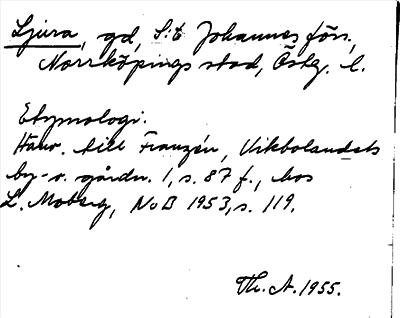 Ljura, gd, S:t Johannes förs.,
Norrköpings stad, Östg. l.
Etymologi.
Hänv. till Franzén, Vikbolandets
by- o. gårdn. 1, s. 87 f., hos
L. Moberg, NoB 1953, s. 119.
Th. A. 1955.